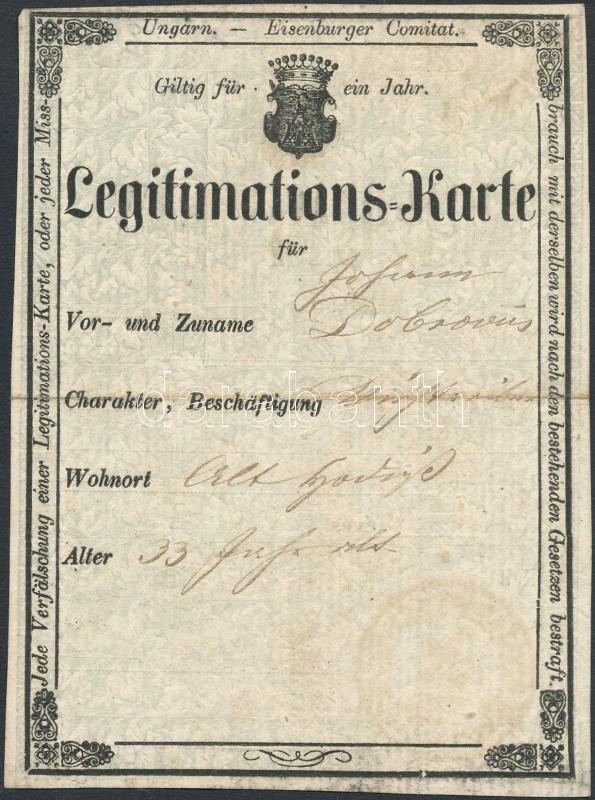 Ungarn. — Eisenburger Comitat.
Giltig für ein Jahr.
Legitimations=Karte
für
Johann
Vor- und Zuname Dobrovits
Charakter, Beschäftigung
Wohnort Alt Hodiß
Alter 33 Jahr alt
Jede Verfälschung einer Legitimations-Karte, oder jeder Miss-
brauch mit derselben wird nach den bestehenden Gesetzen bestraft.
darabanth